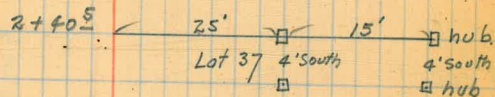 2+40⁵ 25' 15' hub.
Lot 37 4' South 4' South
hub